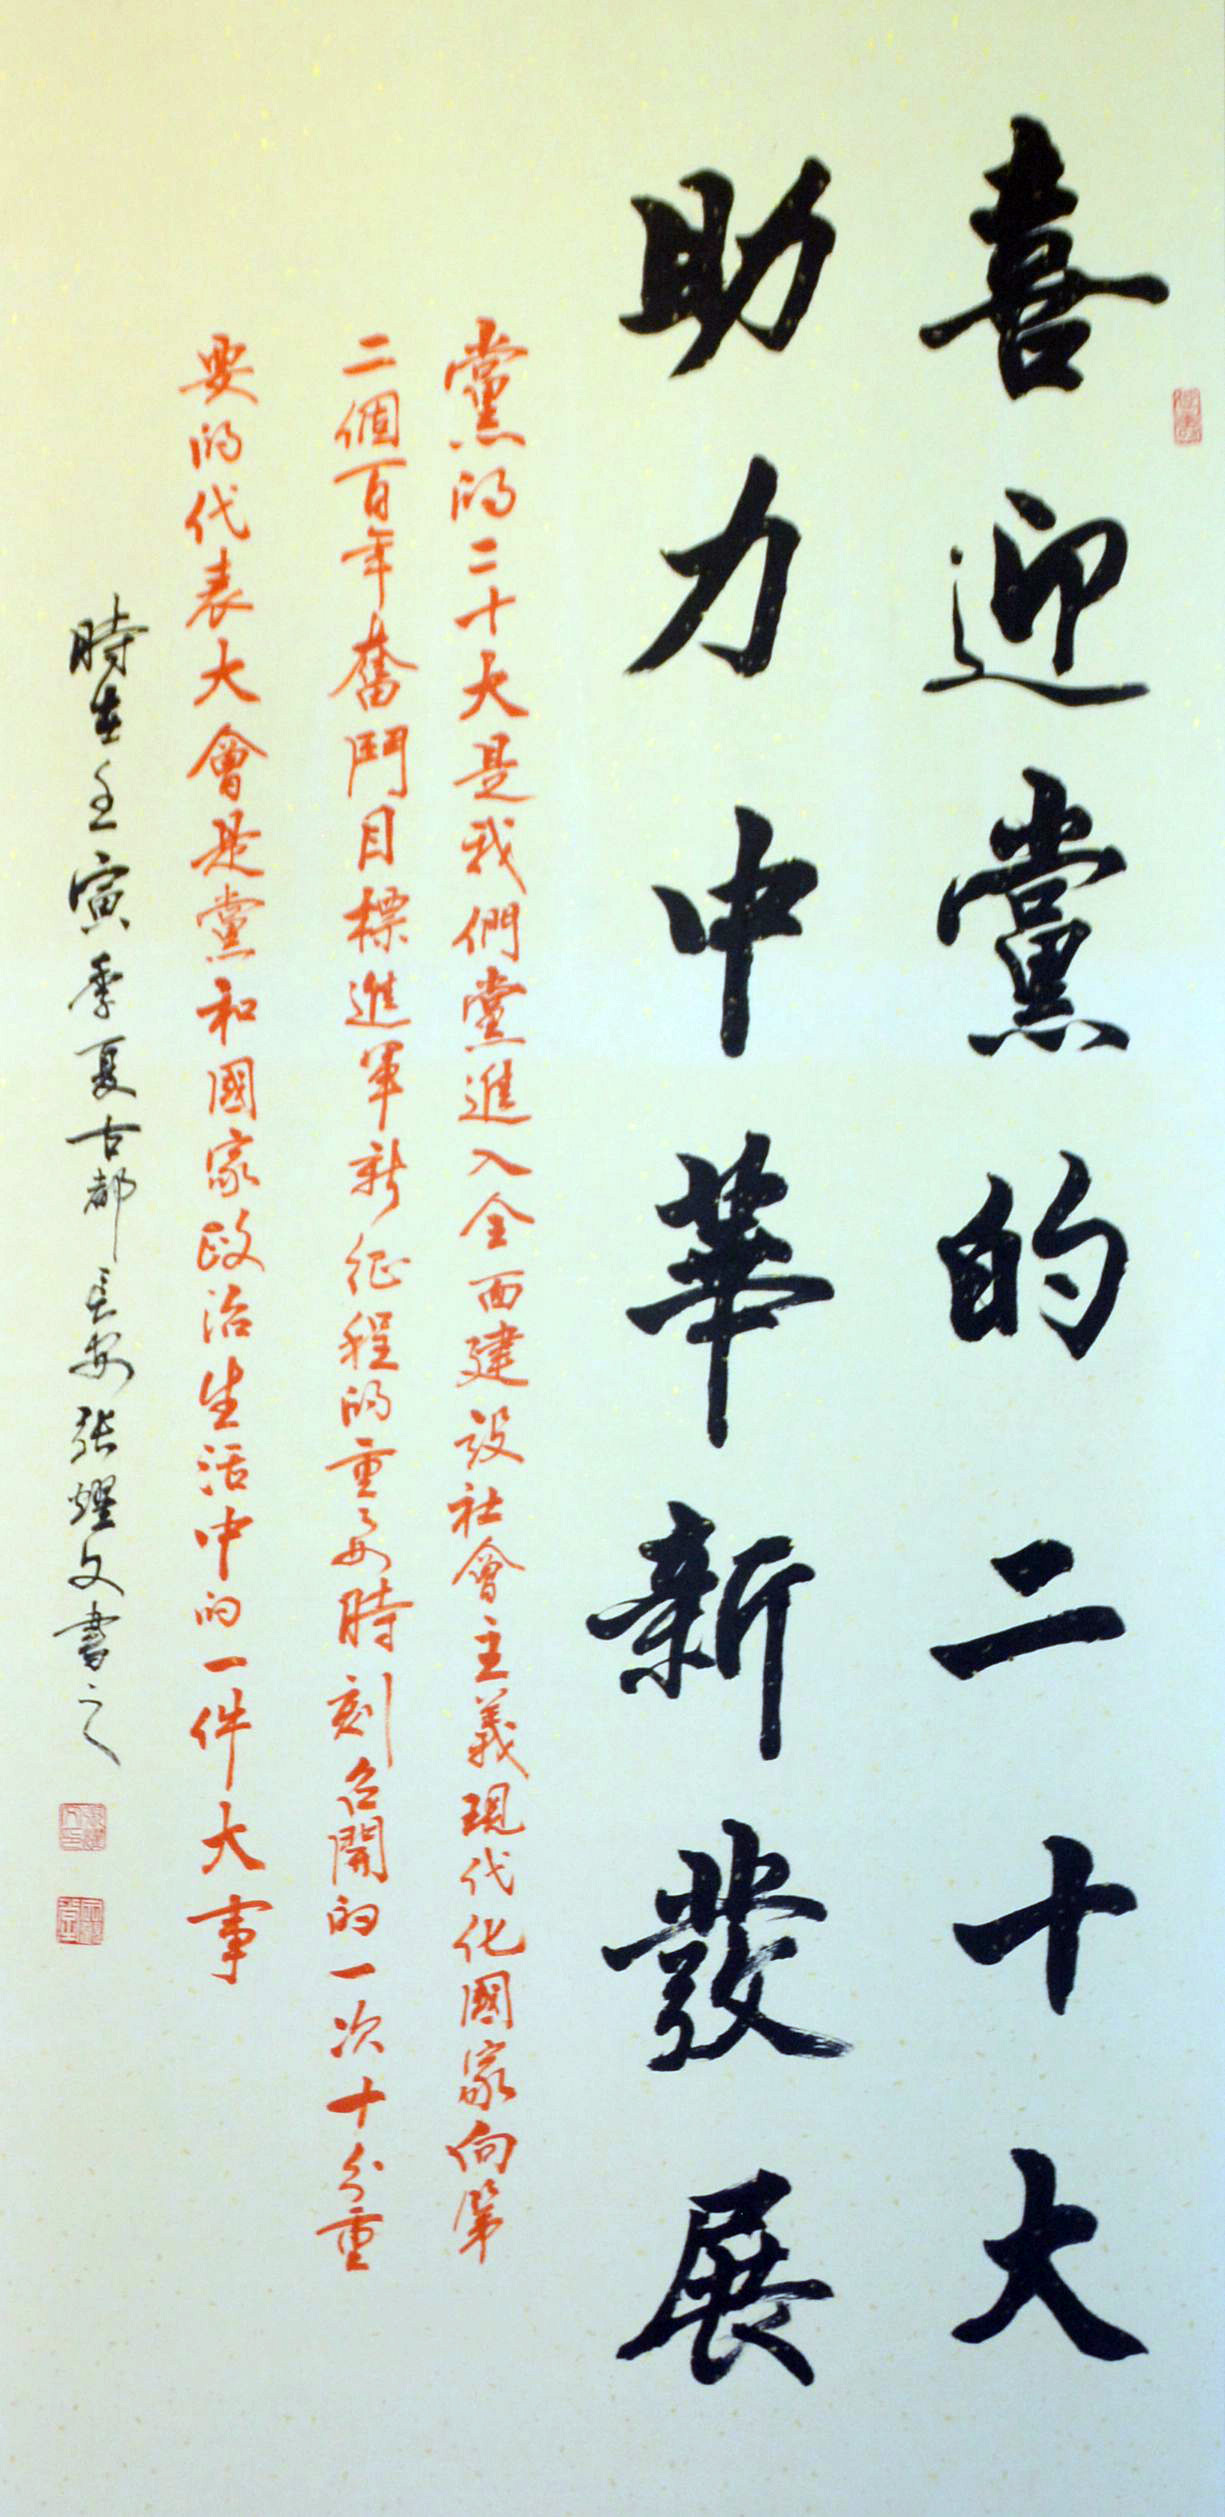 喜迎黨的二十大
助力中華新發展
黨的二十大是我們黨進入全面建設社會主義現代化國家向第
二個百年奮鬥目標進軍新征程的重要時刻召開的一次十分重
要的代表大會是黨和國家政治生活中的一件大事
時在壬寅季夏古都長安張耀文書之